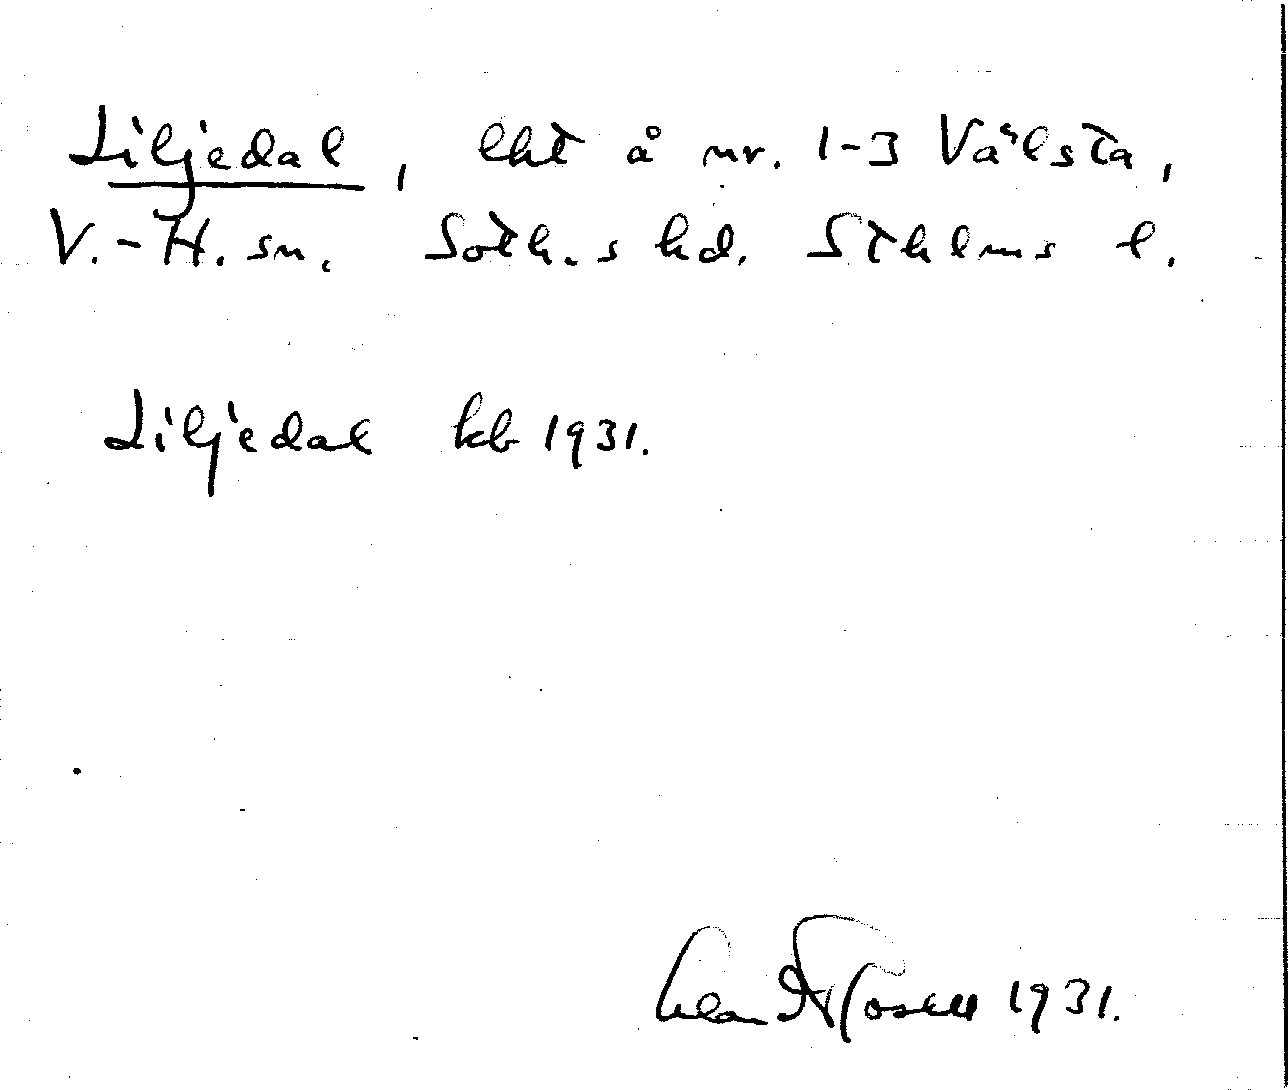 Liljedal, lht å nr. 1-3 Välsta,
V.-H. sn. Soth.s hd. Sthlms l.
Liljedal kb 1931.
1931.